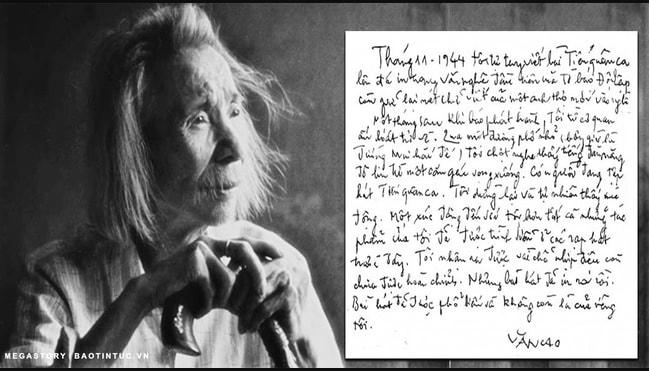 Tháng 11-1944 tôi tự tay viết bài Tiến quân ca
lên đá in trang văn nghệ đầu tiên của tờ báo Độc lập
còn giữ lại nét chữ viết của một anh thợ mới vào nghề
Một tháng sau khi báo phát hành, Tôi từ cơ quan
ấn loát trở về. Qua một đường phố nhỏ (bây giờ là
đường Mai hắc Đế) Tôi chợt nghe thấy tiếng
từ căn gác vọng xuống. Có người đang tập
hát Tiến quân ca. Tôi dừng lại và tự nhiên thấy xúc
động. Một xúc động đến với tôi hơn tất cả những tác
phẩm của tôi đã được trình diễn ở các rạp hát
trước đây. Tôi nhận ra được vài chỗ nhịp điệu còn
chưa được hoàn chỉnh. Nhưng bài hát đã in ra rồi.
Bài hát đã được phổ biến và không còn là của riêng
tôi.
VĂN CAO
MEGASTORY | BAOTINTUC.VN